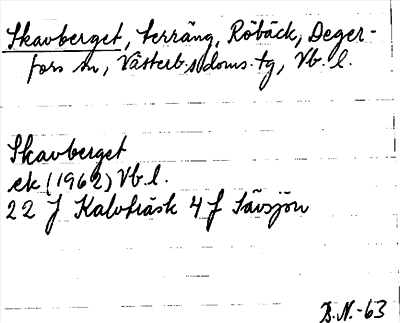 Skavberget, terräng, Röbäck, Deger-
fors sn, Västerb. s. doms. tg, Vb. l.
Skavberget
ek (1962) Vb. l.
22 J Kalvträsk 4 f Sävsjön
B.N.-63